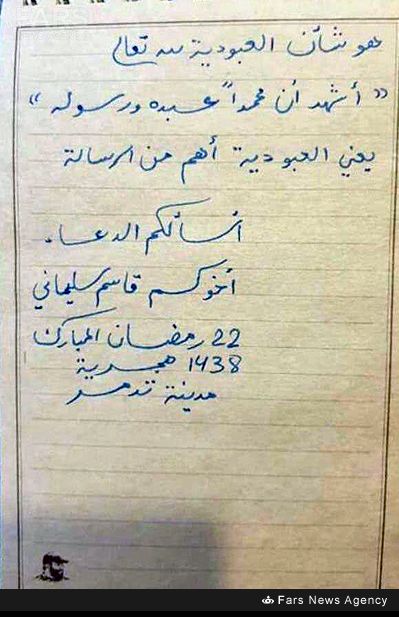 هو شأن العبودية لله تعالى
« أشهد أن محمداً عبده ورسوله »
يعني العبودية أهم من الرسالة
أسألكم الدعاء.
أخوكم قاسم سليماني
22 رمضان المبارك
1438 هجرية
مدينة تدمر
Fars News Agency